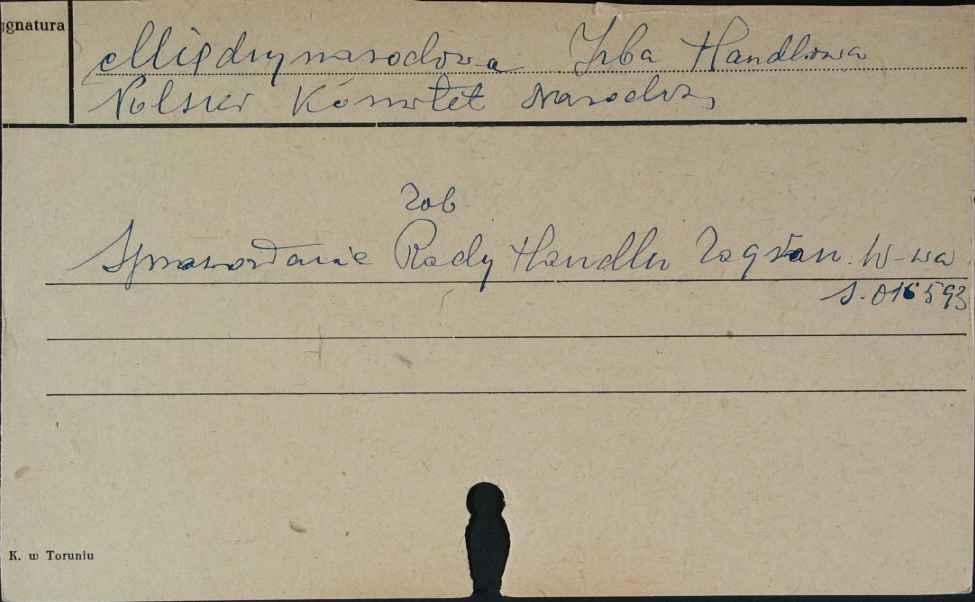 ygnatura
Międzynarodowa Izba Handlowa
Polski Komitet Narodowy
Zob
Sprawozdanie Rady Handlu Zagran. W-wa
S. 016593
K. w Toruniu